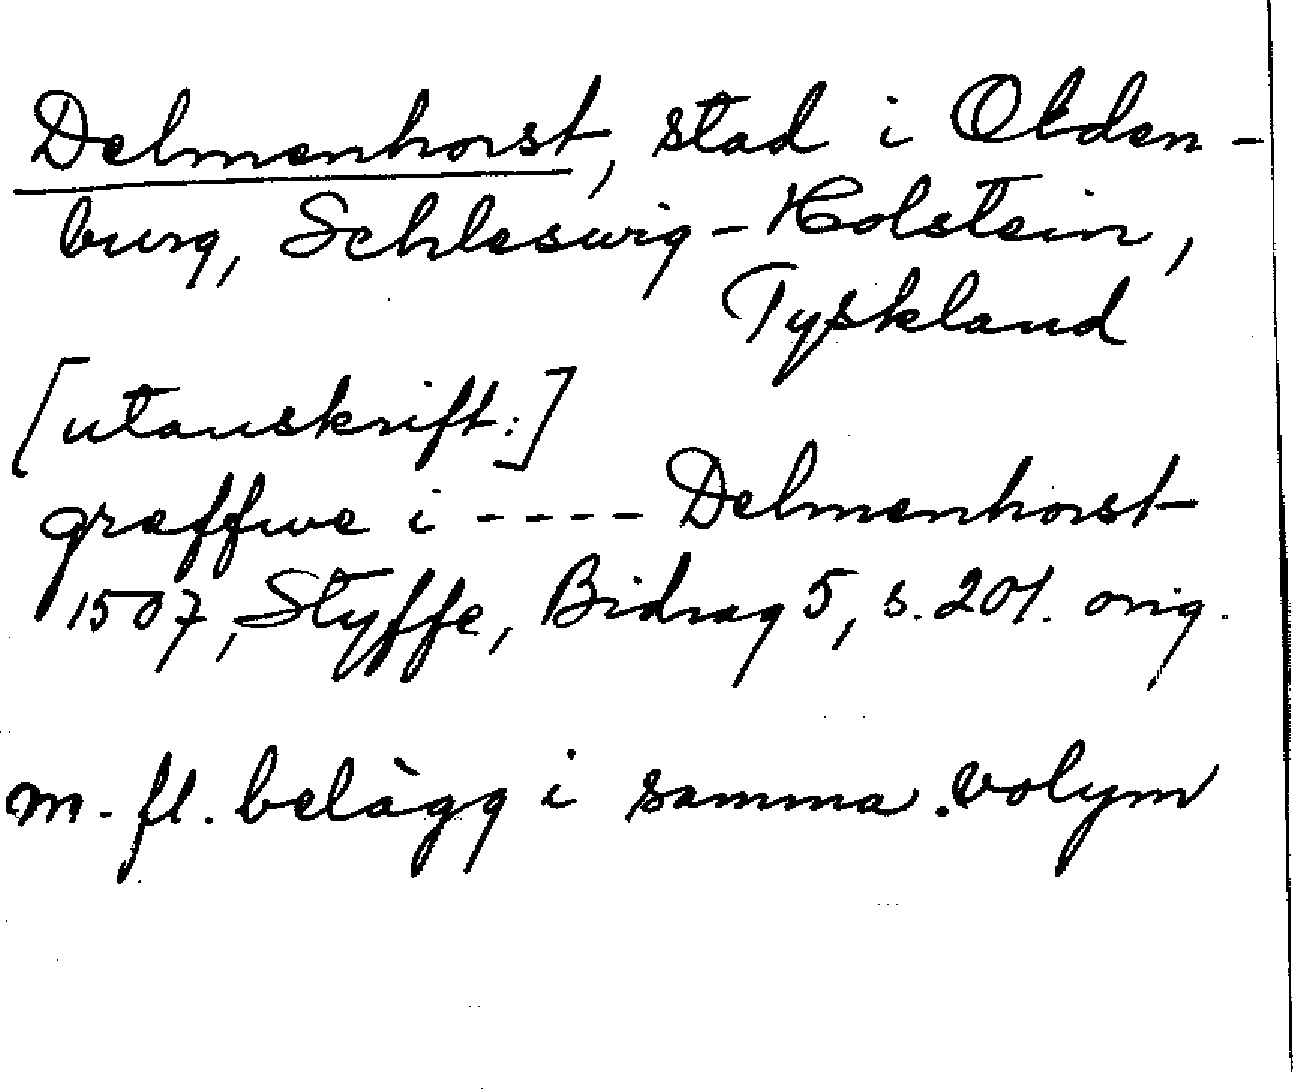 Delmenhorst, stad i Olden-
burg, Schleswig-Holstein,
Tyskland
[utanskrift:]
greffwe i ---- Delmenhorst
1507, Styffe, Bidrag 5, s. 201. orig.
m. fl. belägg i samma volym